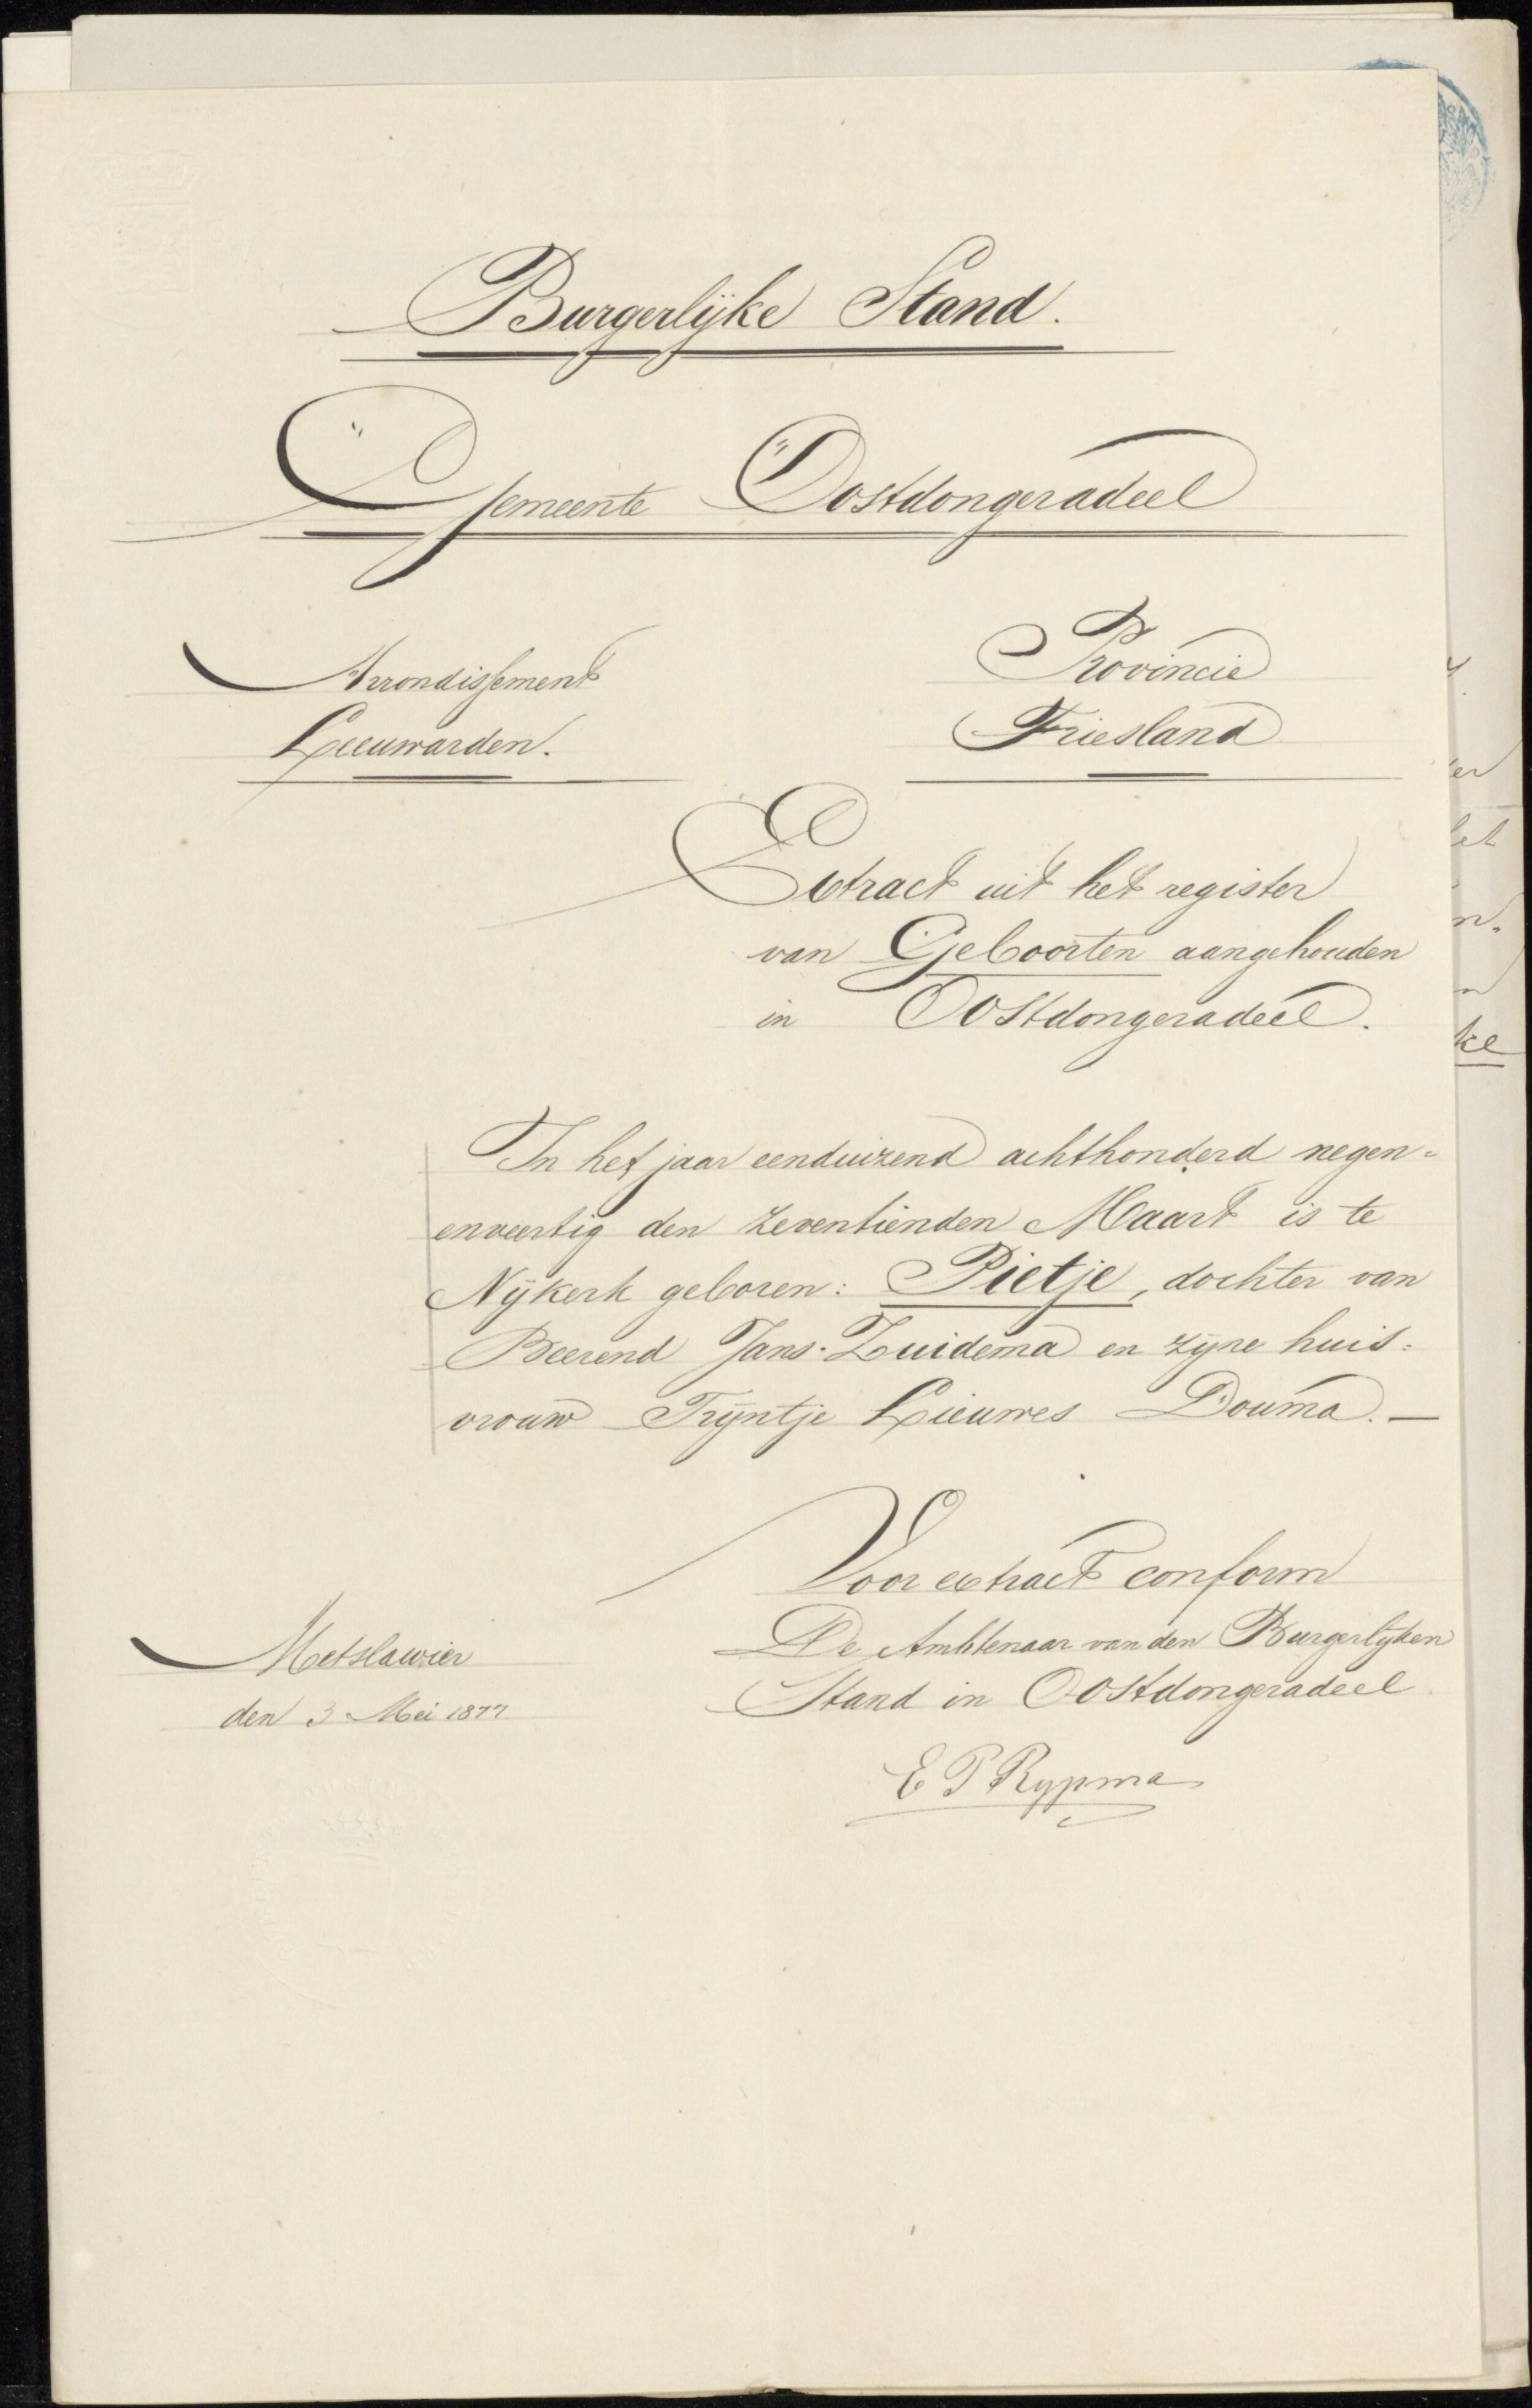 Burgerlijke Stand.
Gemeente Oostdongeradeel
Arrondissement
Leeuwarden.
Provincie
Friesland
Extract uit het register
van Geboorten aangehouden
in Oostdongeradeel.
In het jaar eenduizend achthonderd negen=
enveertig den zeventienden Maart is te
Nijkerk geboren: Pietje, dochter van
Beerend Jans Zuidema en zijne huis=
vrouw Trijntje Lieuwes Douma. —
Voor extract conform
De Ambtenaar van den Burgerlijken
Stand in Oostdongeradeel
Metslawier
den 3 Mei 1877
E P Rypma
er
let
n.
n
ke